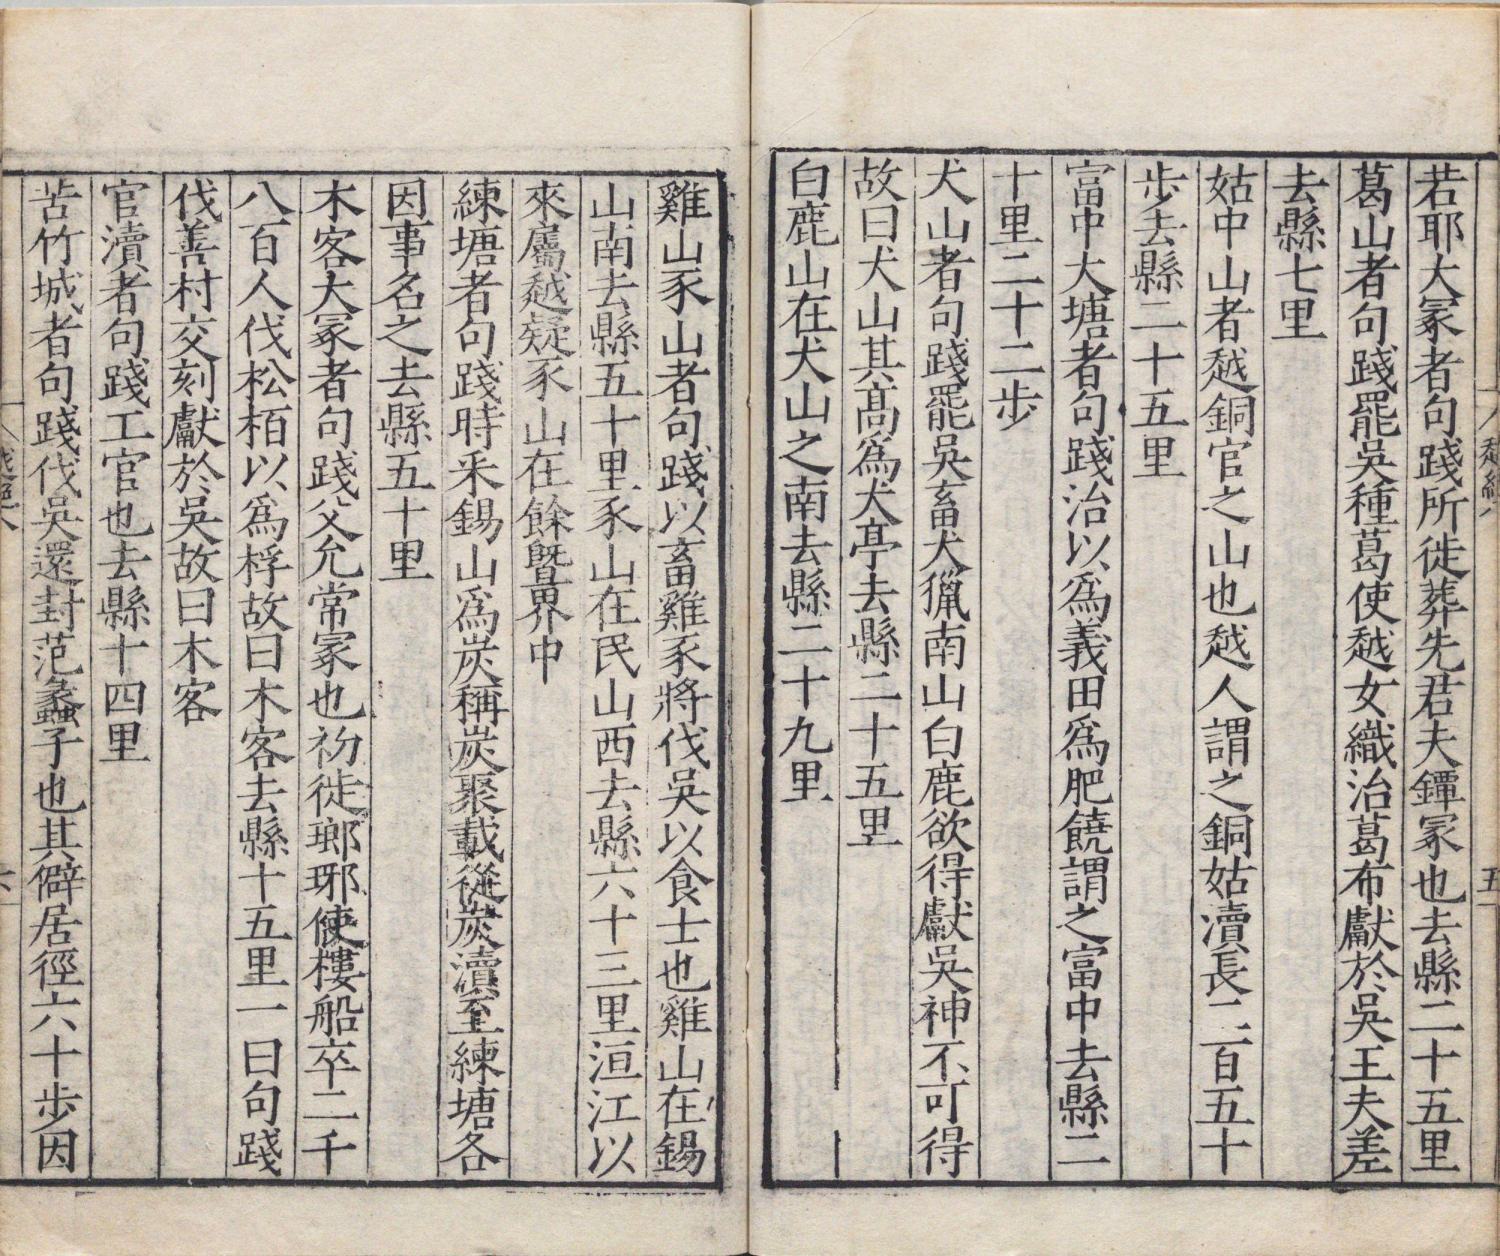 若耶大冢者句踐所徙葬先君夫鐔冢也去縣二十五里
葛山者句踐罷吳種葛使越女織治葛布獻於吳王夫差
去縣七里
姑中山者越銅官之山也越人謂之銅姑瀆長二百五十
步去縣二十五里
富中大塘者句踐治以爲義田爲肥饒謂之富中去縣二
十里二十二步
犬山者句踐罷吳畜犬獵南山白鹿欲得獻吳神不可得
故曰犬山其高爲犬亭去縣二十五里
白鹿山在犬山之南去縣二十九里
雞山豕山者句踐以畜雞豕將伐吳以食士也雞山在錫
山南去縣五十里豕山在民山西去縣六十三里洹江以
來屬越疑豕山在餘暨界中
練塘者句踐時釆錫山爲炭稱炭聚載從炭瀆至練塘各
因事名之去縣五十里
木客大冢者句踐父允常冢也初徙瑯琊使樓船卒二千
八百人伐松栢以爲桴故曰木客去縣十五里一曰句踐
伐善材交刻獻於吳故曰木客
官瀆者句踐工官也去縣十四里
苦竹城者句踐伐吳還封范蠡子也其僻居徑六十步因